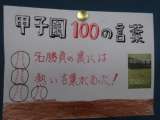 甲子園100の言葉
名勝負の裏には
熱い言葉があった!